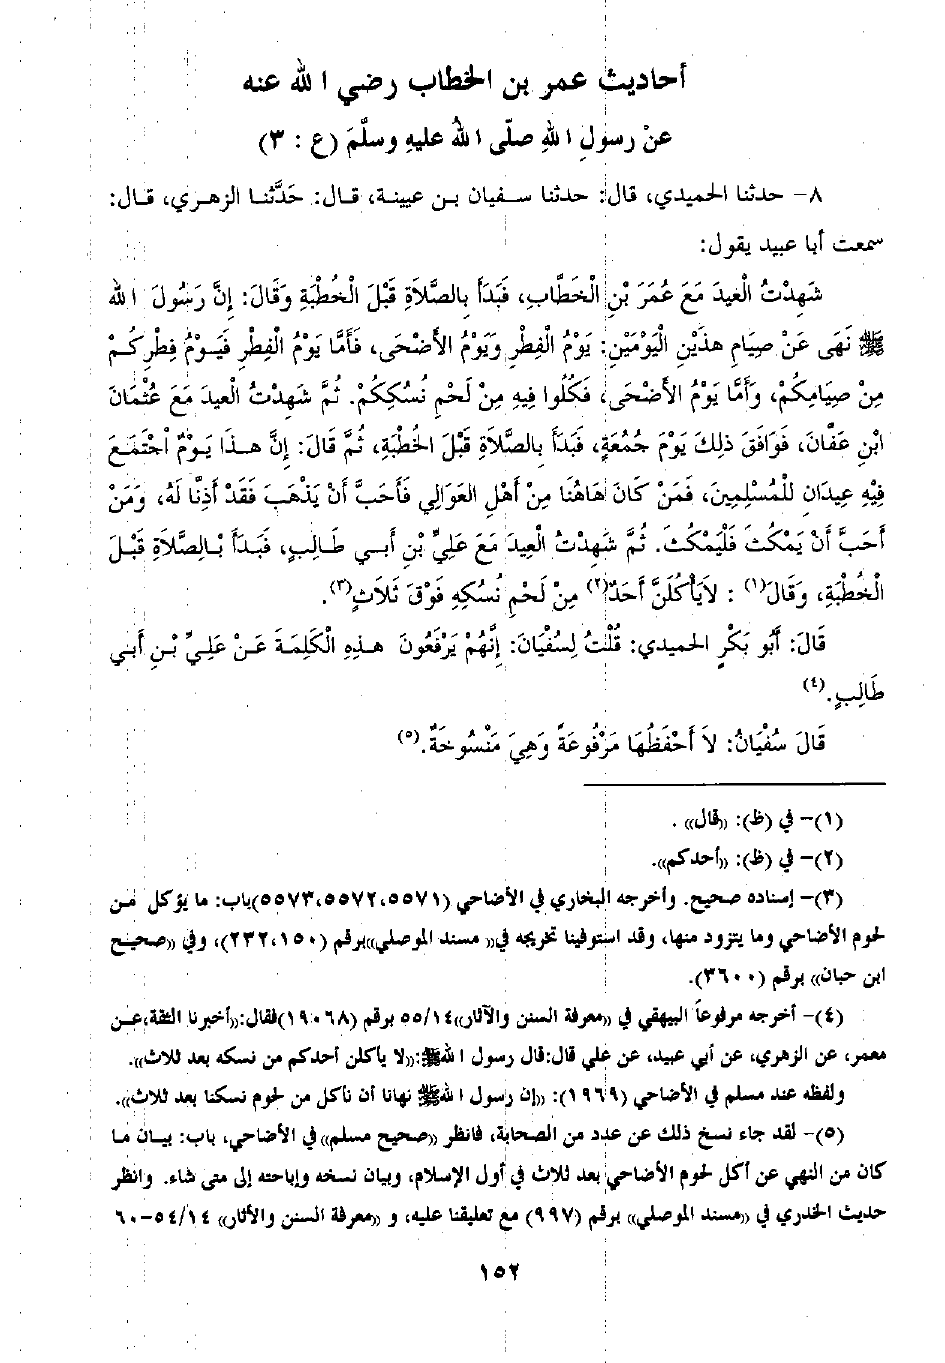 أحاديث عمر بن الخطاب رضي الله عنه
عنْ رسولِ اللهِ صلّى اللهُ عليهِ وسلَّمَ (ع : ٣)
٨- حدثنا الحميدي، قال: حدثنا سفيان بن عيينة، قال: حَدَّثنا الزهري، قال:
سمعت أبا عبيد يقول:
شَهِدْتُ الْعيدَ مَعَ عُمَرَ بْنِ الْخَطَّابِ، فَبَدَأَ بِالصَّلاَةِ قَبْلَ الْخُطْبَةِ وَقَالَ: إِنَّ رَسُولَ الله
ﷺ نَهَى عَنْ صِيَامِ هذَيْنِ الْيَوْمَيْنِ: يَوْمُ الْفِطْرِ وَيَوْمُ الأَضْحَى، فَأَمَّا يَوْمُ الْفِطْرِ فَيَوْمُ فِطْرِكُمْ
مِنْ صِيَامِكُمْ، وَأَمَّا يَوْمُ الأَضْحَى، فَكُلُوا فِيهِ مِنْ لَحْمِ نُسُكِكُمْ. ثُمَّ شَهِدْتُ الْعيدَ مَعَ عُثْمَانَ
ابْنِ عَفَّانَ، فَوَافَقَ ذلِكَ يَوْمَ جُمُعَةٍ، فَبَدَأَ بِالصَّلاَةِ قَبْلَ الخُطْبَةِ، ثُمَّ قَالَ: إِنَّ هذَا يَوْمٌ اْجْتَمَعَ
فِيْهِ عِيدَانِ لْلمُسْلِمِينَ، فَمَنْ كَانَ هَاهُنَا مِنْ أَهْلِ العَوالِي فَأَحَبَّ أَنْ يَذْهَبَ فَقَدْ أَذِنَّا لَهُ، وَمَنْ
أَحَبَّ أَنْ يَمْكُثَ فَلْيَمْكُثْ. ثُمَّ شَهِدْتُ الْعِيدَ مَعَ عَلِيِّ بْنِ أَبي طَالِبٍ، فَبَدَأَ بْالصَّلاَةِ قَبْلَ
الْخُطْبَةِ، وَقَالَ(١) : لاَيَأْكُلَنَّ أَحَدٌ(٢) مِنْ لَحْمِ نُسُكِهِ فَوْقَ ثَلاَثٍ(٣).
قَالَ: أَبُو بَكْرٍ الحميدي: قُلْتُ لِسُفْيَانَ: إِنَّهُمْ يَرْفَعُونَ هذِهِ الْكَلِمَةَ عَنْ عَلِيِّ بْنِ أَبي
طَالِبٍ.(٤)
قَالَ سُفْيَانُ: لاَ أَحْفَظُهَا مَرْفُوعَةً وَهِيَ مَنْسُوخَةٌ.(٥)
(١)- في (ظ): «قال» .
(٢)- في (ظ): «أحدكم».
(٣)- إسناده صحيح. وأخرجه البخاري في الأضاحي (٥٥٧١،٥٥٧٢،٥٥٧٣)باب: ما يؤكل من
لحوم الأضاحي وما يتزود منها، وقد استوفينا تخريجه في« مسند الموصلي»برقم (١٥٠،٢٣٢)، وفي «صحيح
ابن حبان» برقم (٣٦٠٠).
(٤)- أخرجه مرفوعاً البيهقي في «معرفة السنن والآثار»٥٥/١٤ برقم (١٩٠٦٨)فقال:«أخبرنا الثقة،عن
معمر، عن الزهري، عن أبي عبيد، عن علي قال:قال رسول اللهﷺ:«لا يأكلن أحدكم من نسكه بعد ثلاث».
ولفظه عند مسلم في الأضاحي (١٩٦٩): «إن رسول اللهﷺ نهانا أن نأكل من لحوم نسكنا بعد ثلاث».
(٥)- لقد جاء نسخ ذلك عن عدد من الصحابة، فانظر «صحيح مسلم» في الأضاحي، باب: بيان ما
كان من النهي عن أكل لحوم الأضاحي بعد ثلاث في أول الإسلام، وبيان نسخه وإباحته إلى متى شاء. وانظر
حديث الخدري في «مسند الموصلي» برقم (٩٩٧) مع تعليقنا عليه، و «معرفة السنن والأثار» ٥٤/١٤-٦٠
١٥٢